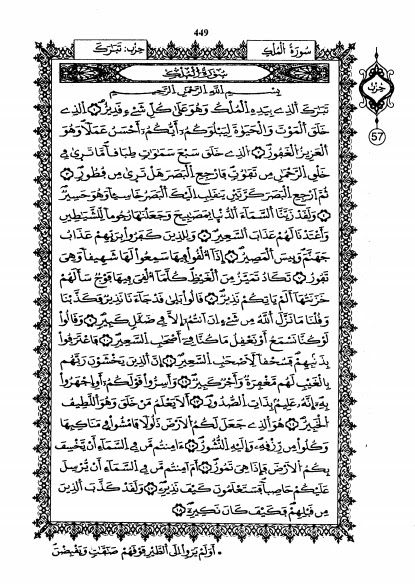 449
سورة الملك
حزب: تبرك
حزب
57
سورة الملك
بسم الله الرحمن الرحيم
تبرك الذے بيده الملك وهو على كل شےء قدير الذے
خلق الموت والحيوة ليبلوكم أيكم أحسن عملا وهو
العزيز الغفور الذے خلق سبع سموات طباقا ما ترى فے
خلق الرحمن من تفوت فارجع البصر هل ترى من فطور
ثم ارجع البصر كرتين ينقلب اليك البصر خاسئا وهو حسير
ولقد زينا السماء الدنيا بمصبيح وجعلنها رجوما للشيطين
وأعتدنا لهم عذاب السعير وللذين كفروا بربهم عذاب
جهنم وبيس المصير إذا ألقوا فيها سمعوا لها شهيقا وهى
تفور تكاد تميز من الغيظ كلما ألقى فيها فوج سألهم
خزنتها ألم ياتكم نذير قالوا بلى قد جاءنا نذير فكذبنا
وقلنا ما نزل الله من شےء ان انتم إلا فے ضلل كبير وقالوا
لو كنا نسمع أو نعقل ما كنا فے أصحب السعير فاعترفوا
بذنبهم فسحقا لأصحب السعير إن الذين يخشون ربهم
بالغيب لهم مغفرة وأجر كبير وأسروا قولكم أو اجهروا
به إنه عليم بذات الصدور ألا يعلم من خلق وهو اللطيف
الخبير هو الذے جعل لكم الأرض ذلولا فامشوا فے مناكبها
وكلوا من رزقه وإليه النشور ءامنتم من فے السماء ان يخسف
بكم الأرض فإذا هى تمور أم امنتم من فے السماء ان يرسل
عليكم حاصبا فستعلمون كيف نذير ولقد كذب الذين
من قبلهم فكيف كان نكير
• أولم يروا الى الطير فوقهم صفت ويقبضن